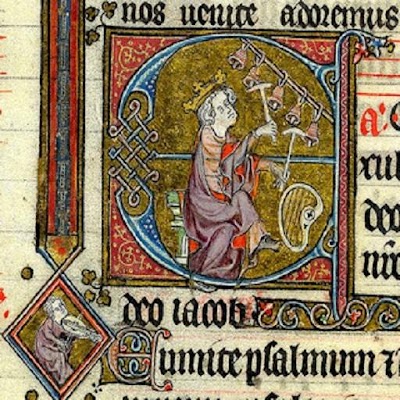 nos uenite adoremus
a:
E
xul
deo
nrō
deo iacob
Sumite psalmum ⁊